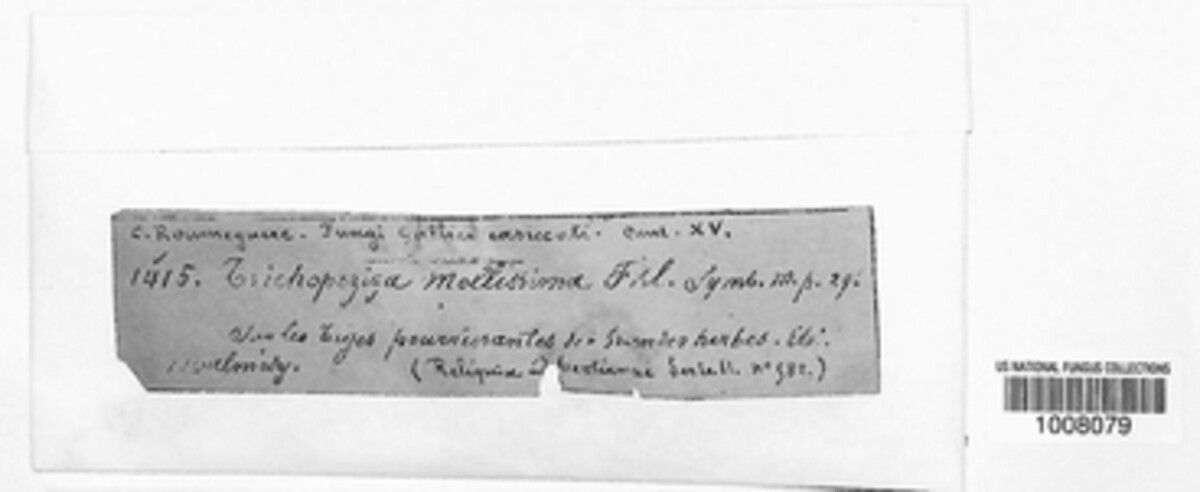 C. Roumeguere. Fungi Gallici exsiccati. Cent. XV.
1415. Trichopeziza mollissima Fkl. Symb. m. p. 29.
Sur les tiges pourrissantes des Grandes herbes. Eté.
(Reliquiæ Libertianae n° 982.)
US NATIONAL FUNGUS COLLECTIONS
1008079